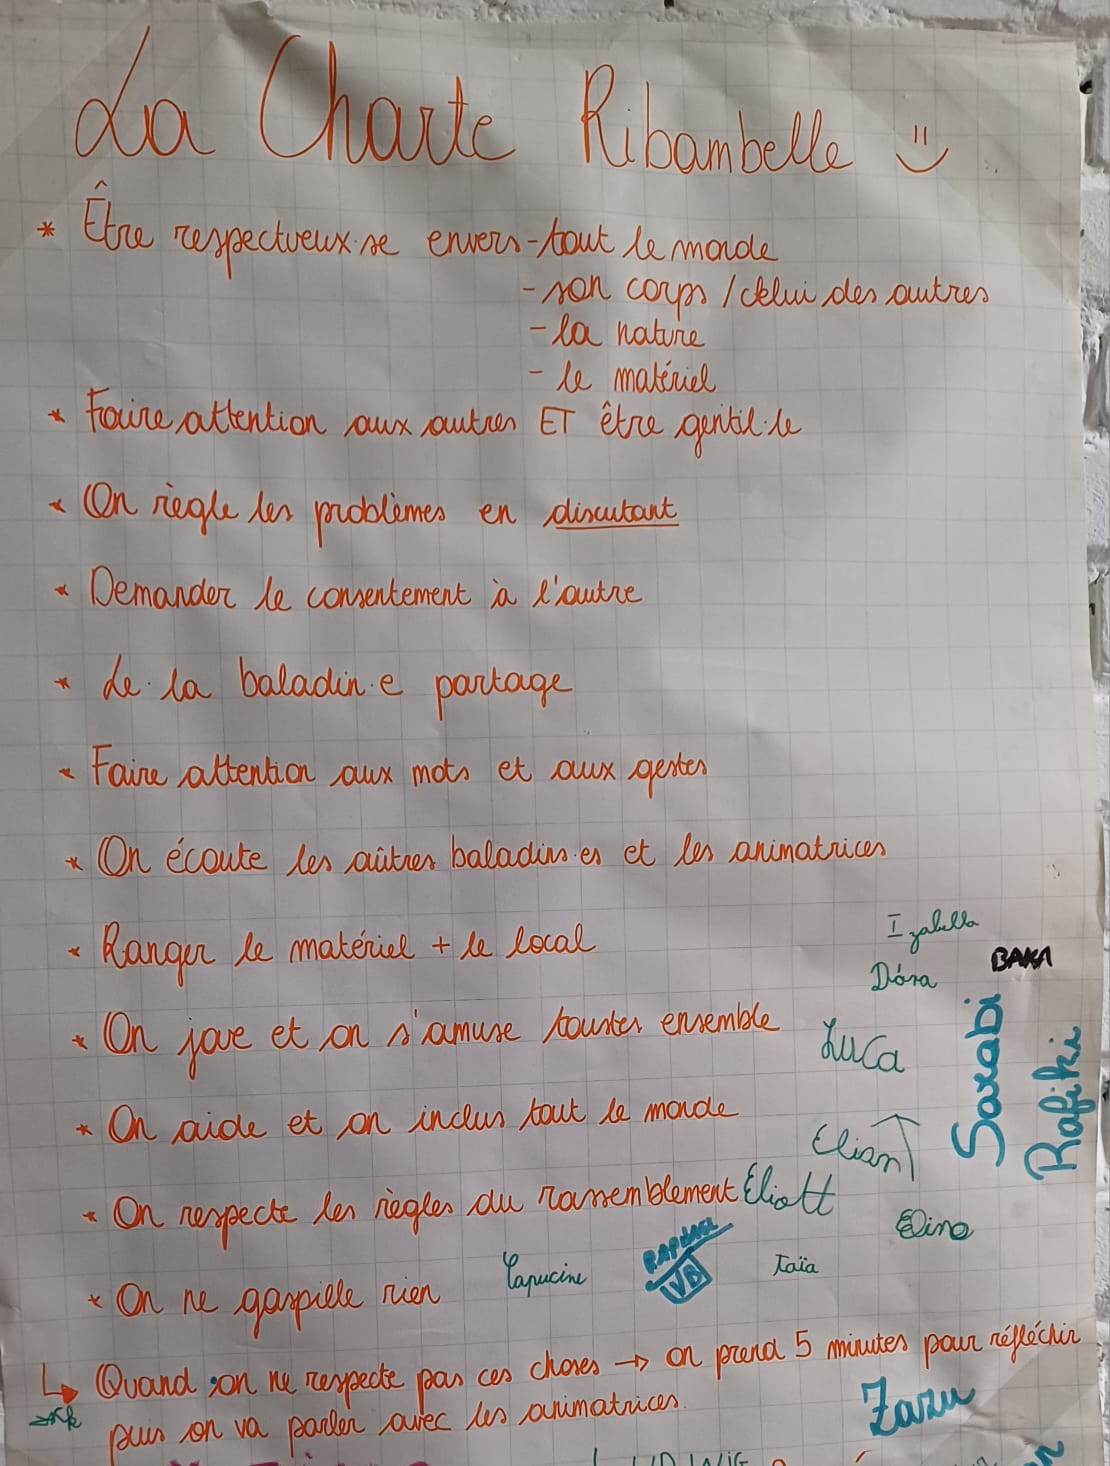 La Charte Ribambelle
* Être respectueux·se envers - tout le monde
- son corps / celui des autres
- la nature
- le matériel
* Faire attention aux autres ET être gentil·le
* On règle les problèmes en discutant
* Demander le consentement à l'autre
* Le·la baladin·e partage
* Faire attention aux mots et aux gestes
* On écoute les autres baladins·es et les animatrices
* Ranger le matériel + le local
Izabella
Dóra
BAKA
* On joue et on s'amuse toustes ensemble
Luca
Sarabi
Rafiki
* On aide et on inclus tout le monde
Elian
* On respecte les règles du rassemblement
Eliott
Dino
* On ne gaspille rien
Capucine
RAPHAEL
VB
Taïa
↳ Quand on ne respecte pas ces choses → on prend 5 minutes pour réfléchir
puis on va parler avec les animatrices.
Zazu
LUDWIG